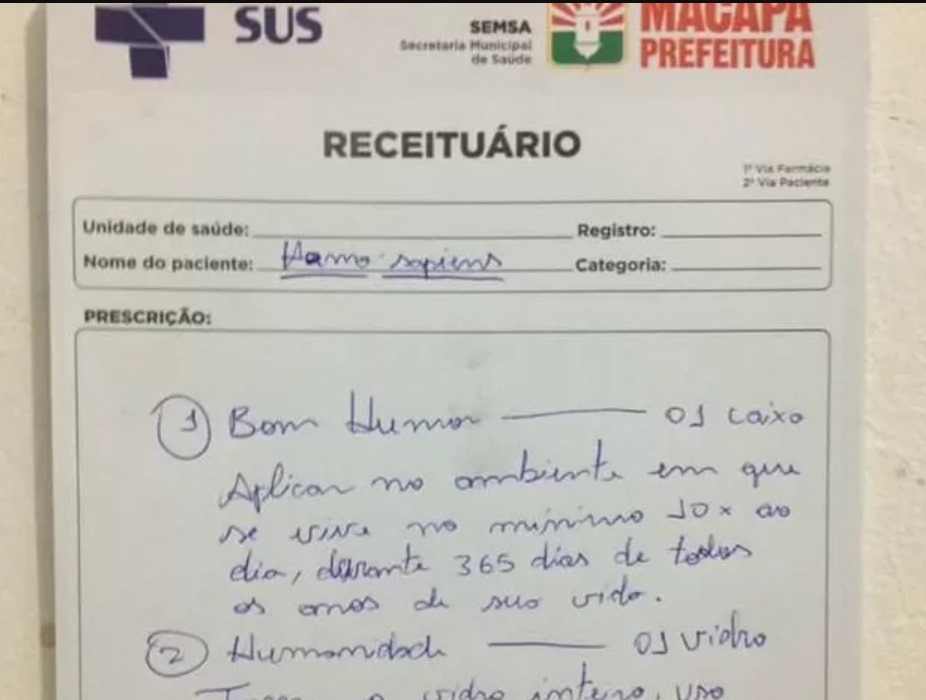 SUS
SEMSA
Secretaria Municipal
de Saúde
MACAPÁ
PREFEITURA
RECEITUÁRIO
1ª Via Farmácia
2ª Via Paciente
Unidade de saúde: Registro:
Nome do paciente: Homo sapiens Categoria:
PRESCRIÇÃO:
1 Bom Humor 01 caixa
Aplicar no ambiente em que
se vive no mínimo 10x ao
dia, durante 365 dias de todos
os anos de sua vida.
2 Humanidade 01 vidro
vidro inteiro, uso